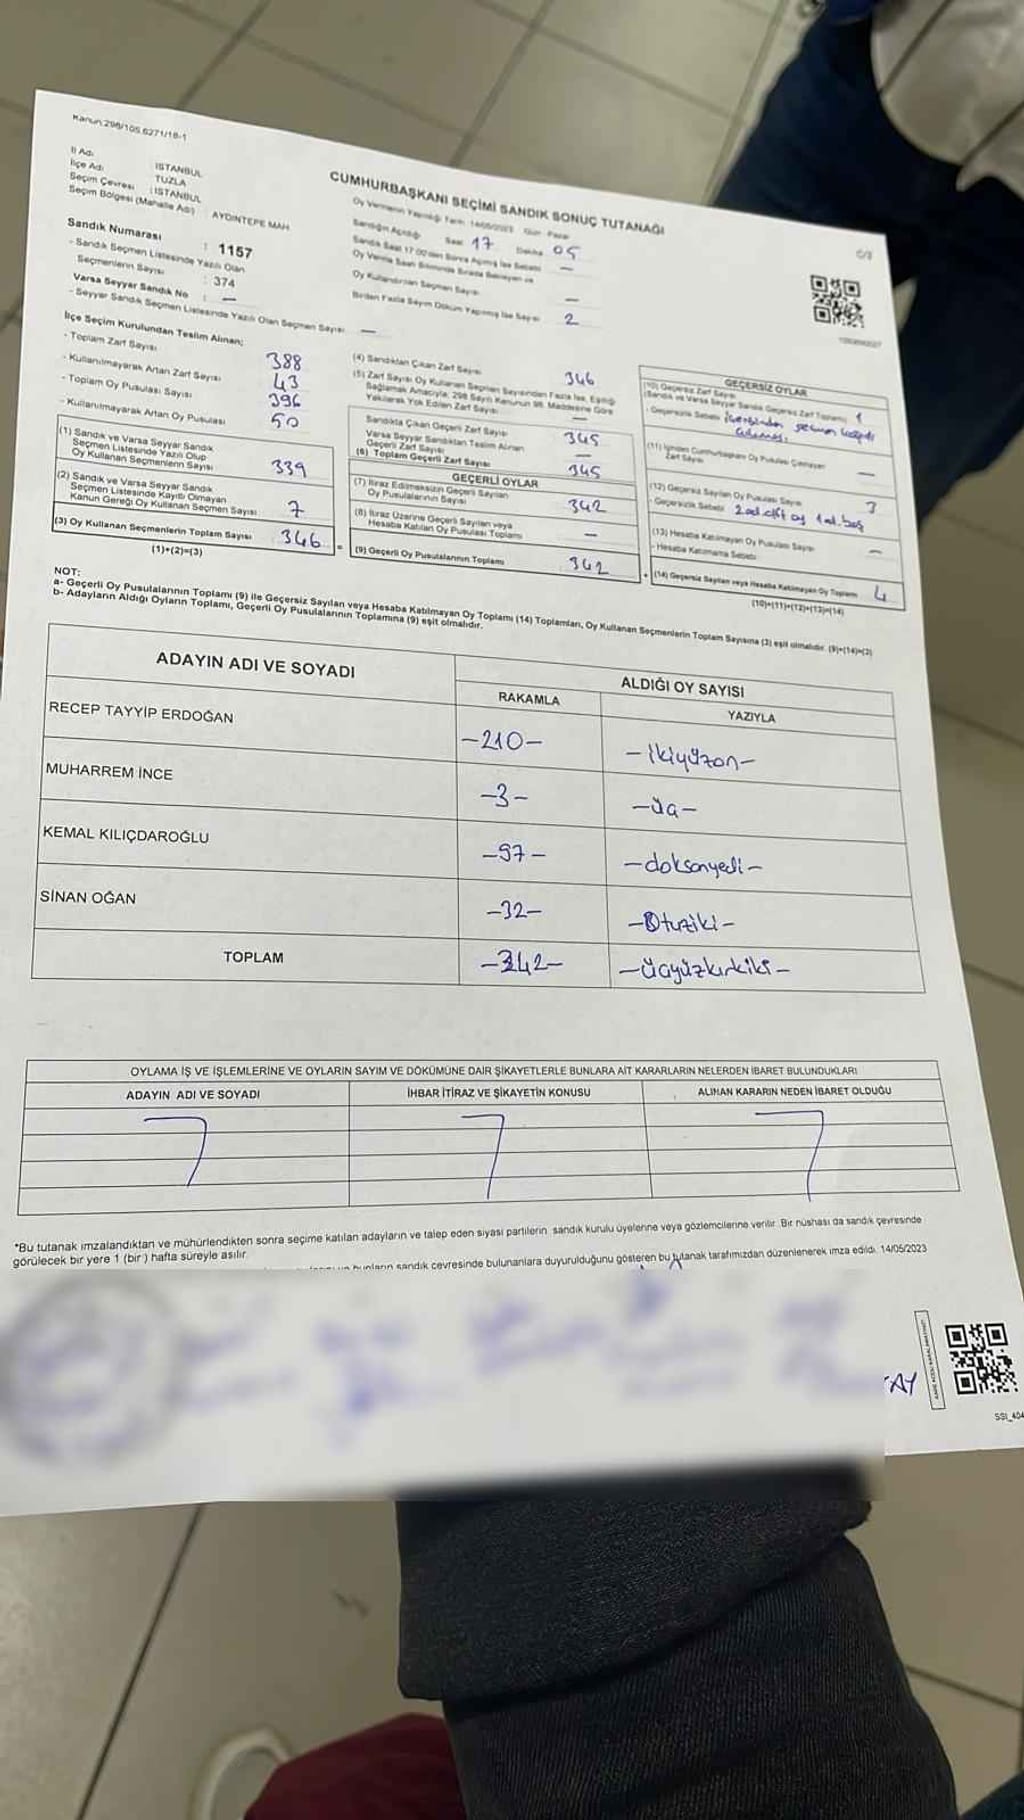 Kanun:298/105,6271/18-1
İl Adı : İSTANBUL
İlçe Adı TUZLA
Seçim Çevresi : İSTANBUL
Seçim Bölgesi (Mahalle Adı) AYDINTEPE MAH
Sandık Numarası : 1157
- Sandık Seçmen Listesinde Yazılı Olan
Seçmenlerin Sayısı : 374
Varsa Seyyar Sandık No : —
- Seyyar Sandık Seçmen Listesinde Yazılı Olan Seçmen Sayısı —
CUMHURBAŞKANI SEÇİMİ SANDIK SONUÇ TUTANAĞI
Oy Vermenin Yapıldığı Tarih: 14/05/2023 Gün: Pazar
Sandığın Açıldığı Saat 17 Dakika 05
Sandık Saat 17:00'den Sonra Açılmış İse Sebebi —
Oy Verme Saati Bitiminde Sırada Bekleyen ve
Oy Kullandırılan Seçmen Sayısı —
Birden Fazla Sayım Döküm Yapılmış İse Sayısı 2
İlçe Seçim Kurulundan Teslim Alınan;
- Toplam Zarf Sayısı 388
- Kullanılmayarak Artan Zarf Sayısı 43
- Toplam Oy Pusulası Sayısı 396
- Kullanılmayarak Artan Oy Pusulası 50
(1) Sandık ve Varsa Seyyar Sandık
Seçmen Listesinde Yazılı Olup
Oy Kullanan Seçmenlerin Sayısı 339
(2) Sandık ve Varsa Seyyar Sandık
Seçmen Listesinde Kayıtlı Olmayan
Kanun Gereği Oy Kullanan Seçmen Sayısı 7
(3) Oy Kullanan Seçmenlerin Toplam Sayısı 346
(1)+(2)=(3)
(4) Sandıktan Çıkan Zarf Sayısı 346
(5) Zarf Sayısı Oy Kullanan Seçmen Sayısından Fazla İse, Eşitliği
Sağlamak Amacıyla, 298 Sayılı Kanunun 98. Maddesine Göre
Yakılarak Yok Edilen Zarf Sayısı —
Sandıkta Çıkan Geçerli Zarf Sayısı 345
Varsa Seyyar Sandıktan Teslim Alınan
Geçerli Zarf Sayısı —
(6) Toplam Geçerli Zarf Sayısı 345
GEÇERLİ OYLAR
(7) İtiraz Edilmeksizin Geçerli Sayılan
Oy Pusulalarının Sayısı 342
(8) İtiraz Üzerine Geçerli Sayılan veya
Hesaba Katılan Oy Pusulası Toplamı —
(9) Geçerli Oy Pusulalarının Toplamı 342
GEÇERSİZ OYLAR
(10) Geçersiz Zarf Sayısı
(Sandık ve Varsa Seyyar Sandık Geçersiz Zarf Toplamı) 1
- Geçersizlik Sebebi
(11) İçinden Cumhurbaşkanı Oy Pusulası Çıkmayan
Zarf Sayısı —
(12) Geçersiz Sayılan Oy Pusula Sayısı 3
- Geçersizlik Sebebi 2 ad. çift oy 1 ad. boş
(13) Hesaba Katılmayan Oy Pusulası Sayısı —
- Hesaba Katılmama Sebebi
(14) Geçersiz Sayılan veya Hesaba Katılmayan Oy Toplamı 4
(10)+(11)+(12)+(13)=(14)
NOT:
a- Geçerli Oy Pusulalarının Toplamı (9) ile Geçersiz Sayılan veya Hesaba Katılmayan Oy Toplamı (14) Toplamları, Oy Kullanan Seçmenlerin Toplam Sayısına (3) eşit olmalıdır. (9)+(14)=(3)
b- Adayların Aldığı Oyların Toplamı, Geçerli Oy Pusulalarının Toplamına (9) eşit olmalıdır.
ADAYIN ADI VE SOYADI ALDIĞI OY SAYISI
RAKAMLA YAZIYLA
RECEP TAYYİP ERDOĞAN -210- -ikiyüzon-
MUHARREM İNCE -3- -üç-
KEMAL KILIÇDAROĞLU -97- -doksanyedi-
SİNAN OĞAN -32- -Otuziki-
TOPLAM -342- -üçyüzkırkiki-
OYLAMA İŞ VE İŞLEMLERİNE VE OYLARIN SAYIM VE DÖKÜMÜNE DAİR ŞİKAYETLERLE BUNLARA AİT KARARLARIN NELERDEN İBARET BULUNDUKLARI
ADAYIN ADI VE SOYADI İHBAR İTİRAZ VE ŞİKAYETİN KONUSU ALINAN KARARIN NEDEN İBARET OLDUĞU
*Bu tutanak imzalandıktan ve mühürlendikten sonra seçime katılan adayların ve talep eden siyasi partilerin sandık kurulu üyelerine veya gözlemcilerine verilir. Bir nüshası da sandık çevresinde
görülecek bir yere 1 (bir) hafta süreyle asılır.
sandık çevresinde bulunanlara duyurulduğunu gösteren bu tutanak tarafımızdan düzenlenerek imza edildi. 14/05/2023
SSI_404